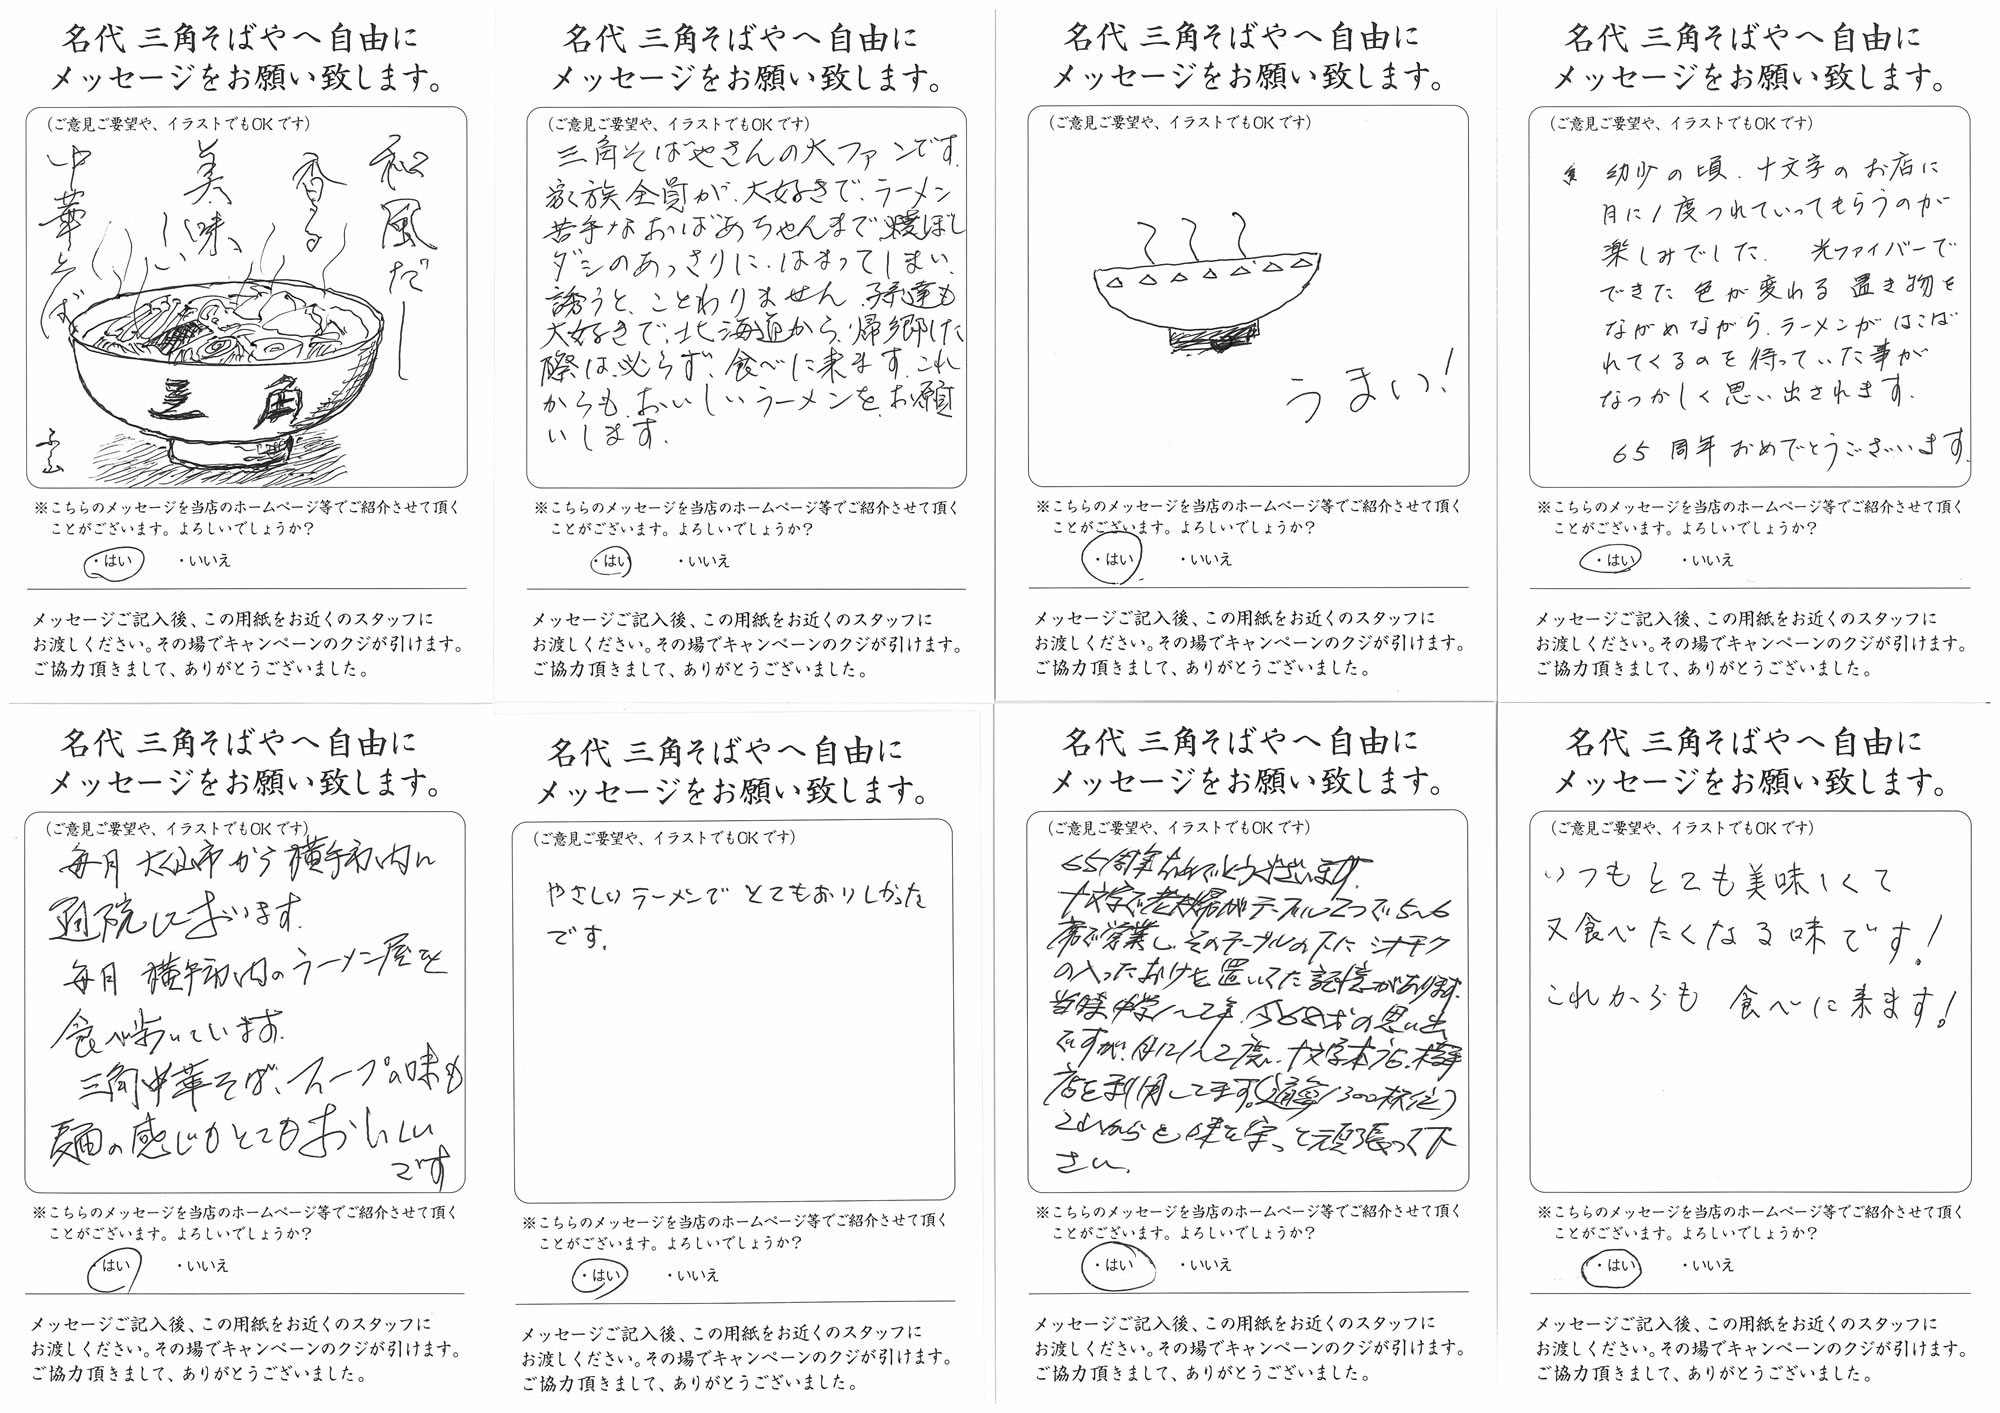 名代 三角そばやへ自由に
メッセージをお願い致します。
(ご意見ご要望や、イラストでもOKです)
和風だし
香る
美味しい
中華そば
三角
※こちらのメッセージを当店のホームページ等でご紹介させて頂く
ことがございます。よろしいでしょうか?
・はい ・いいえ
メッセージご記入後、この用紙をお近くのスタッフに
お渡しください。その場でキャンペーンのクジが引けます。
ご協力頂きまして、ありがとうございました。
名代 三角そばやへ自由に
メッセージをお願い致します。
(ご意見ご要望や、イラストでもOKです)
三角そばやさんの大ファンです。
家族全員が、大好きで、ラーメン
苦手なおばあちゃんまで焼ぼし
ダシのあっさりに、はまってしまい、
誘うと、ことわりません。子供達も
大好きで、北海道から、帰郷した
際は、必らず、食べに来ます。これ
からも、おいしいラーメンを、お願
いします。
※こちらのメッセージを当店のホームページ等でご紹介させて頂く
ことがございます。よろしいでしょうか?
・はい ・いいえ
メッセージご記入後、この用紙をお近くのスタッフに
お渡しください。その場でキャンペーンのクジが引けます。
ご協力頂きまして、ありがとうございました。
名代 三角そばやへ自由に
メッセージをお願い致します。
(ご意見ご要望や、イラストでもOKです)
うまい!
※こちらのメッセージを当店のホームページ等でご紹介させて頂く
ことがございます。よろしいでしょうか?
・はい ・いいえ
メッセージご記入後、この用紙をお近くのスタッフに
お渡しください。その場でキャンペーンのクジが引けます。
ご協力頂きまして、ありがとうございました。
名代 三角そばやへ自由に
メッセージをお願い致します。
(ご意見ご要望や、イラストでもOKです)
幼少の頃、十文字のお店に
月に1度つれていってもらうのが
楽しみでした。 光ファイバーで
できた色が変わる置き物を
ながめながら、ラーメンがはこば
れてくるのを待っていた事が
なつかしく思い出されます。
65周年おめでとうございます。
※こちらのメッセージを当店のホームページ等でご紹介させて頂く
ことがございます。よろしいでしょうか?
・はい ・いいえ
メッセージご記入後、この用紙をお近くのスタッフに
お渡しください。その場でキャンペーンのクジが引けます。
ご協力頂きまして、ありがとうございました。
名代 三角そばやへ自由に
メッセージをお願い致します。
(ご意見ご要望や、イラストでもOKです)
毎月 大仙市から横手市内に
通院しております。
毎月 横手市内のラーメン屋を
食べ歩いています。
三角中華そば、スープの味も
麺の感じもとてもおいしい
です
※こちらのメッセージを当店のホームページ等でご紹介させて頂く
ことがございます。よろしいでしょうか?
・はい ・いいえ
メッセージご記入後、この用紙をお近くのスタッフに
お渡しください。その場でキャンペーンのクジが引けます。
ご協力頂きまして、ありがとうございました。
名代 三角そばやへ自由に
メッセージをお願い致します。
(ご意見ご要望や、イラストでもOKです)
やさしいラーメンで とてもおいしかった
です。
※こちらのメッセージを当店のホームページ等でご紹介させて頂く
ことがございます。よろしいでしょうか?
・はい ・いいえ
メッセージご記入後、この用紙をお近くのスタッフに
お渡しください。その場でキャンペーンのクジが引けます。
ご協力頂きまして、ありがとうございました。
名代 三角そばやへ自由に
メッセージをお願い致します。
(ご意見ご要望や、イラストでもOKです)
65周年おめでとうございます。
十文字で老夫婦がテーブル2つで5〜6
席で営業し、そのテーブルの下に シナチク
の入ったおけを置いてた記憶があります。
当時中学1〜2年、今68才の思い出
ですが、月に1〜2度、十文字本店、横手
店を利用してます。(通算1300杯位)
これからも味を守って頑張って下
さい。
※こちらのメッセージを当店のホームページ等でご紹介させて頂く
ことがございます。よろしいでしょうか?
・はい ・いいえ
メッセージご記入後、この用紙をお近くのスタッフに
お渡しください。その場でキャンペーンのクジが引けます。
ご協力頂きまして、ありがとうございました。
名代 三角そばやへ自由に
メッセージをお願い致します。
(ご意見ご要望や、イラストでもOKです)
いつもとても美味しくて
又食べたくなる味です!
これからも 食べに来ます!
※こちらのメッセージを当店のホームページ等でご紹介させて頂く
ことがございます。よろしいでしょうか?
・はい ・いいえ
メッセージご記入後、この用紙をお近くのスタッフに
お渡しください。その場でキャンペーンのクジが引けます。
ご協力頂きまして、ありがとうございました。